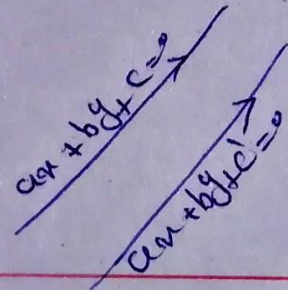 ax + by + c = 0
ax + by + c' = 0